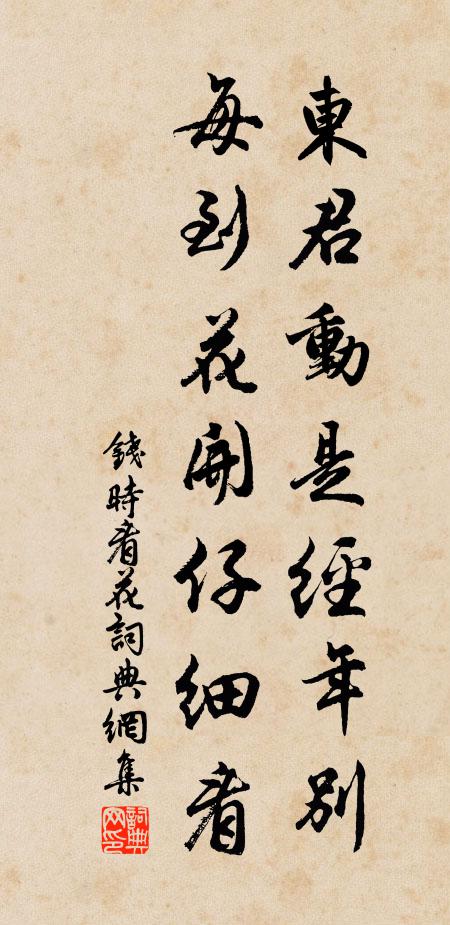 東君動是經年別
每到花開仔細看
錢時看花詞典網集
詞典網印